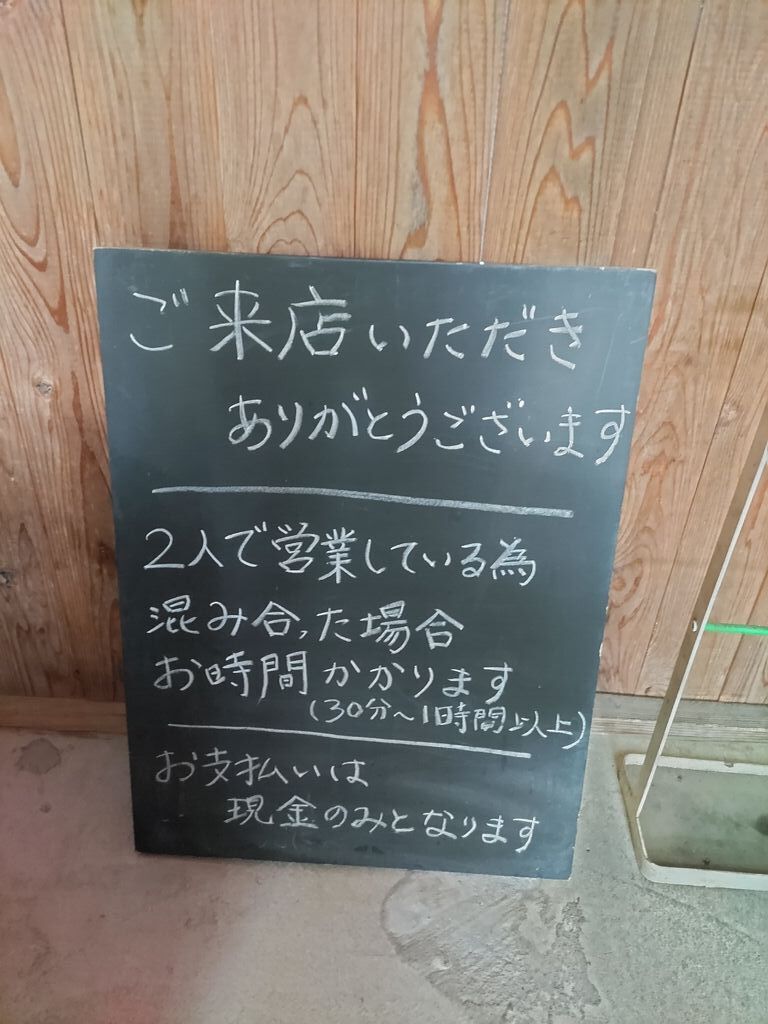 ご来店いただき
ありがとうございます
2人で営業している為
混み合った場合
お時間かかります
(30分〜1時間以上)
お支払いは
現金のみとなります